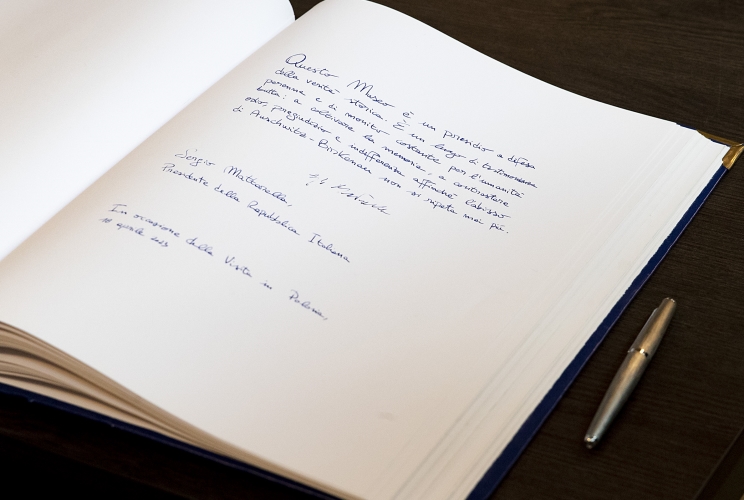 Questo Museo è un presidio a difesa
della verità storica. È un luogo di testimonianza
perenne e di monito costante per l'umanità
tutta: a coltivare la memoria, a contrastare
odio, pregiudizio e indifferenza affinché l'abisso
di Auschwitz-Birkenau non si ripeta mai più.
Sergio Mattarella
Presidente della Repubblica Italiana
In occasione della Visita in Polonia,
aprile 2023